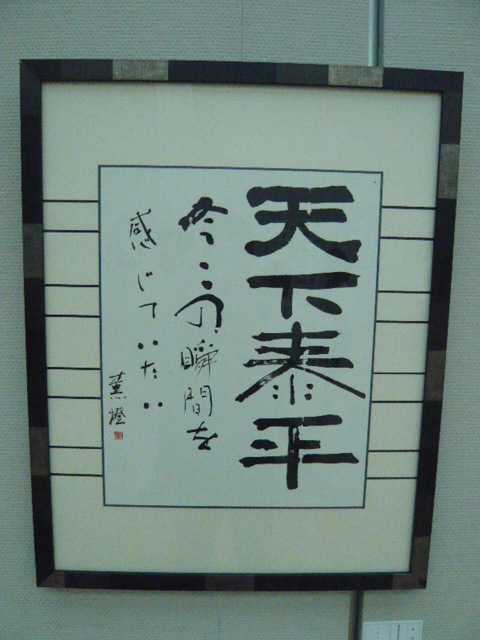 天下泰平
今この瞬間を
感じていたい
薫